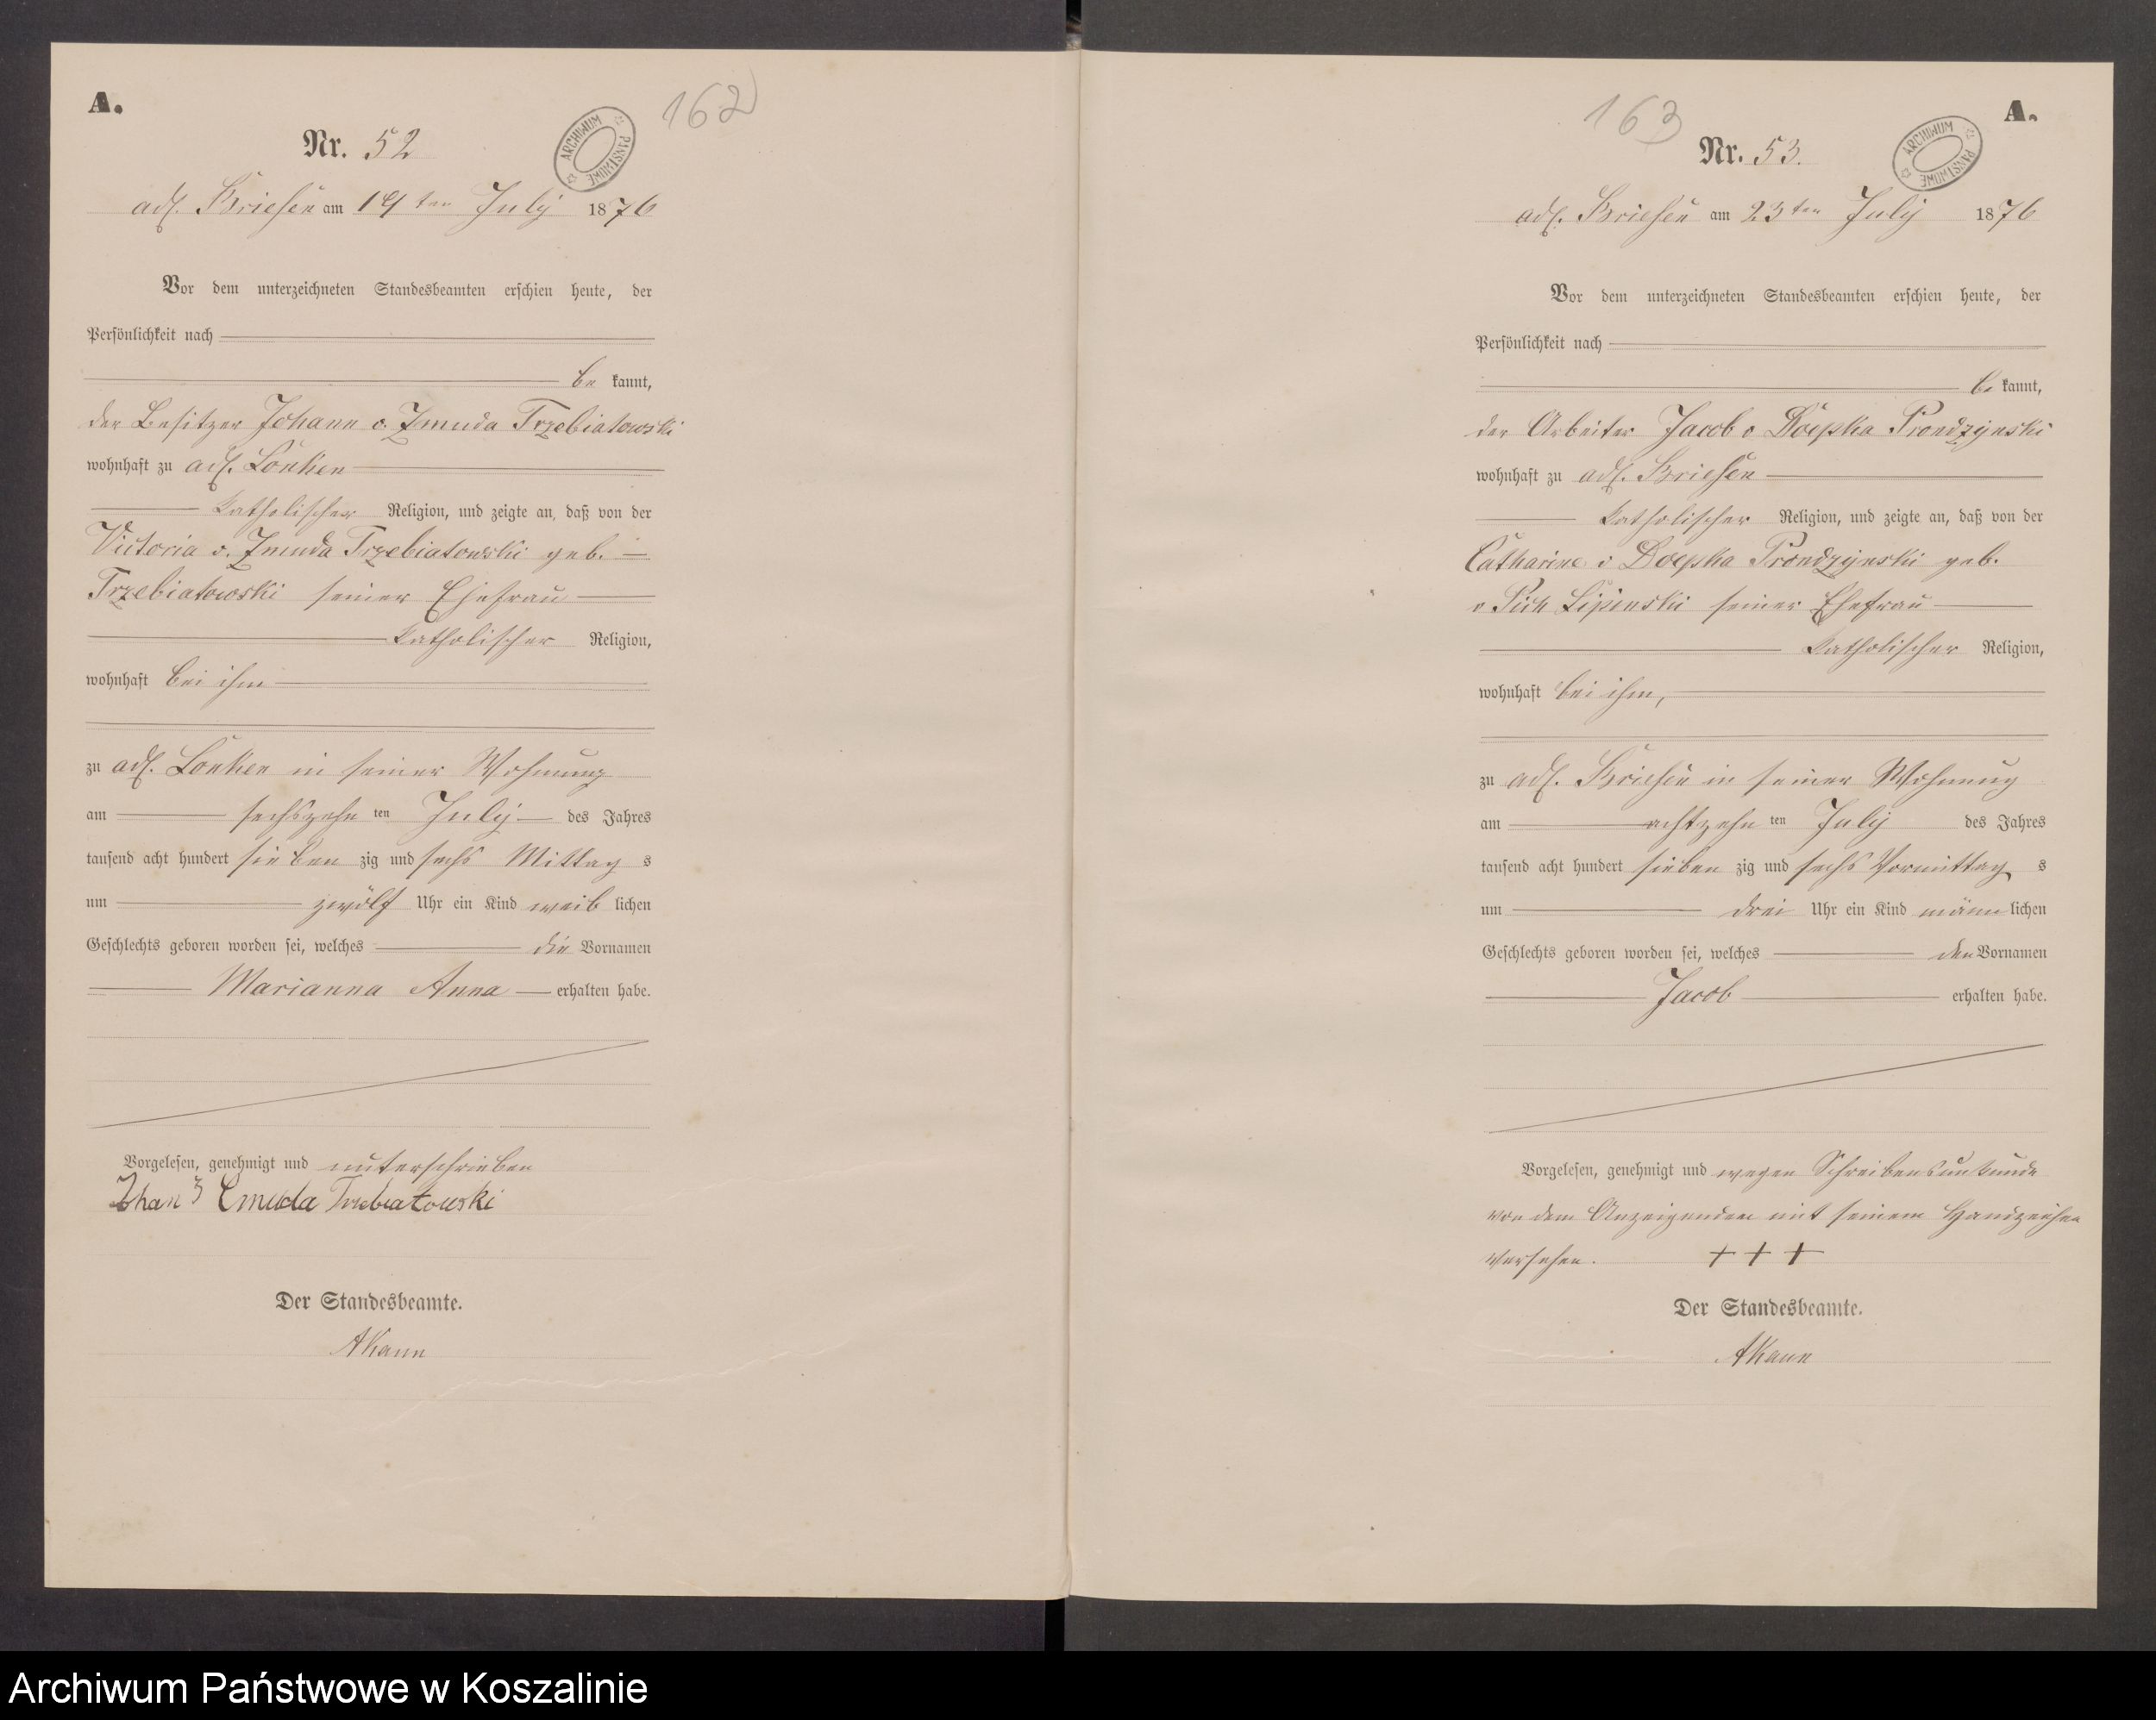 A.
162
Nr. 52
ARCHIWUM PAŃSTWOWE
adl. Briesen am 19ten July 1876
Vor dem unterzeichneten Standesbeamten erschien heute, der
Persönlichkeit nach
be kannt,
der Besitzer Johann v. Zmuda Trzebiatowski
wohnhaft zu adl. Lonken
katholischer Religion, und zeigte an, daß von der
Victoria v. Zmuda Trzebiatowski geb.
Trzebiatowski seiner Ehefrau
katholischer Religion,
wohnhaft bei ihm
zu adl. Lonken in seiner Wohnung
am sechszehn ten July des Jahres
tausend acht hundert sieben zig und sechs Mittag s
um zwölf Uhr ein Kind weib lichen
Geschlechts geboren worden sei, welches die Vornamen
Marianna Anna erhalten habe.
Vorgelesen, genehmigt und unterschrieben
Trzebiatowski
Der Standesbeamte.
AKann
163
A.
Nr. 53.
ARCHIWUM PAŃSTWOWE
adl. Briesen am 23ten July 1876
Vor dem unterzeichneten Standesbeamten erschien heute, der
Persönlichkeit nach
be kannt,
der Arbeiter Jacob v Doepka Prondzynski
wohnhaft zu adl. Briesen
katholischer Religion, und zeigte an, daß von der
Catharine v Doepka Prondzynski geb.
v Pich Lipinski seiner Ehefrau
katholischer Religion,
wohnhaft bei ihm,
zu adl. Briesen in seiner Wohnung
am achtzehn ten July des Jahres
tausend acht hundert sieben zig und sechs Vormittag s
um drei Uhr ein Kind männ lichen
Geschlechts geboren worden sei, welches den Vornamen
Jacob erhalten habe.
Vorgelesen, genehmigt und wegen Schreibensunkunde
von dem Anzeigenden mit seinem Handzeichen
versehen. + + +
Der Standesbeamte.
AKann
Archiwum Państwowe w Koszalinie